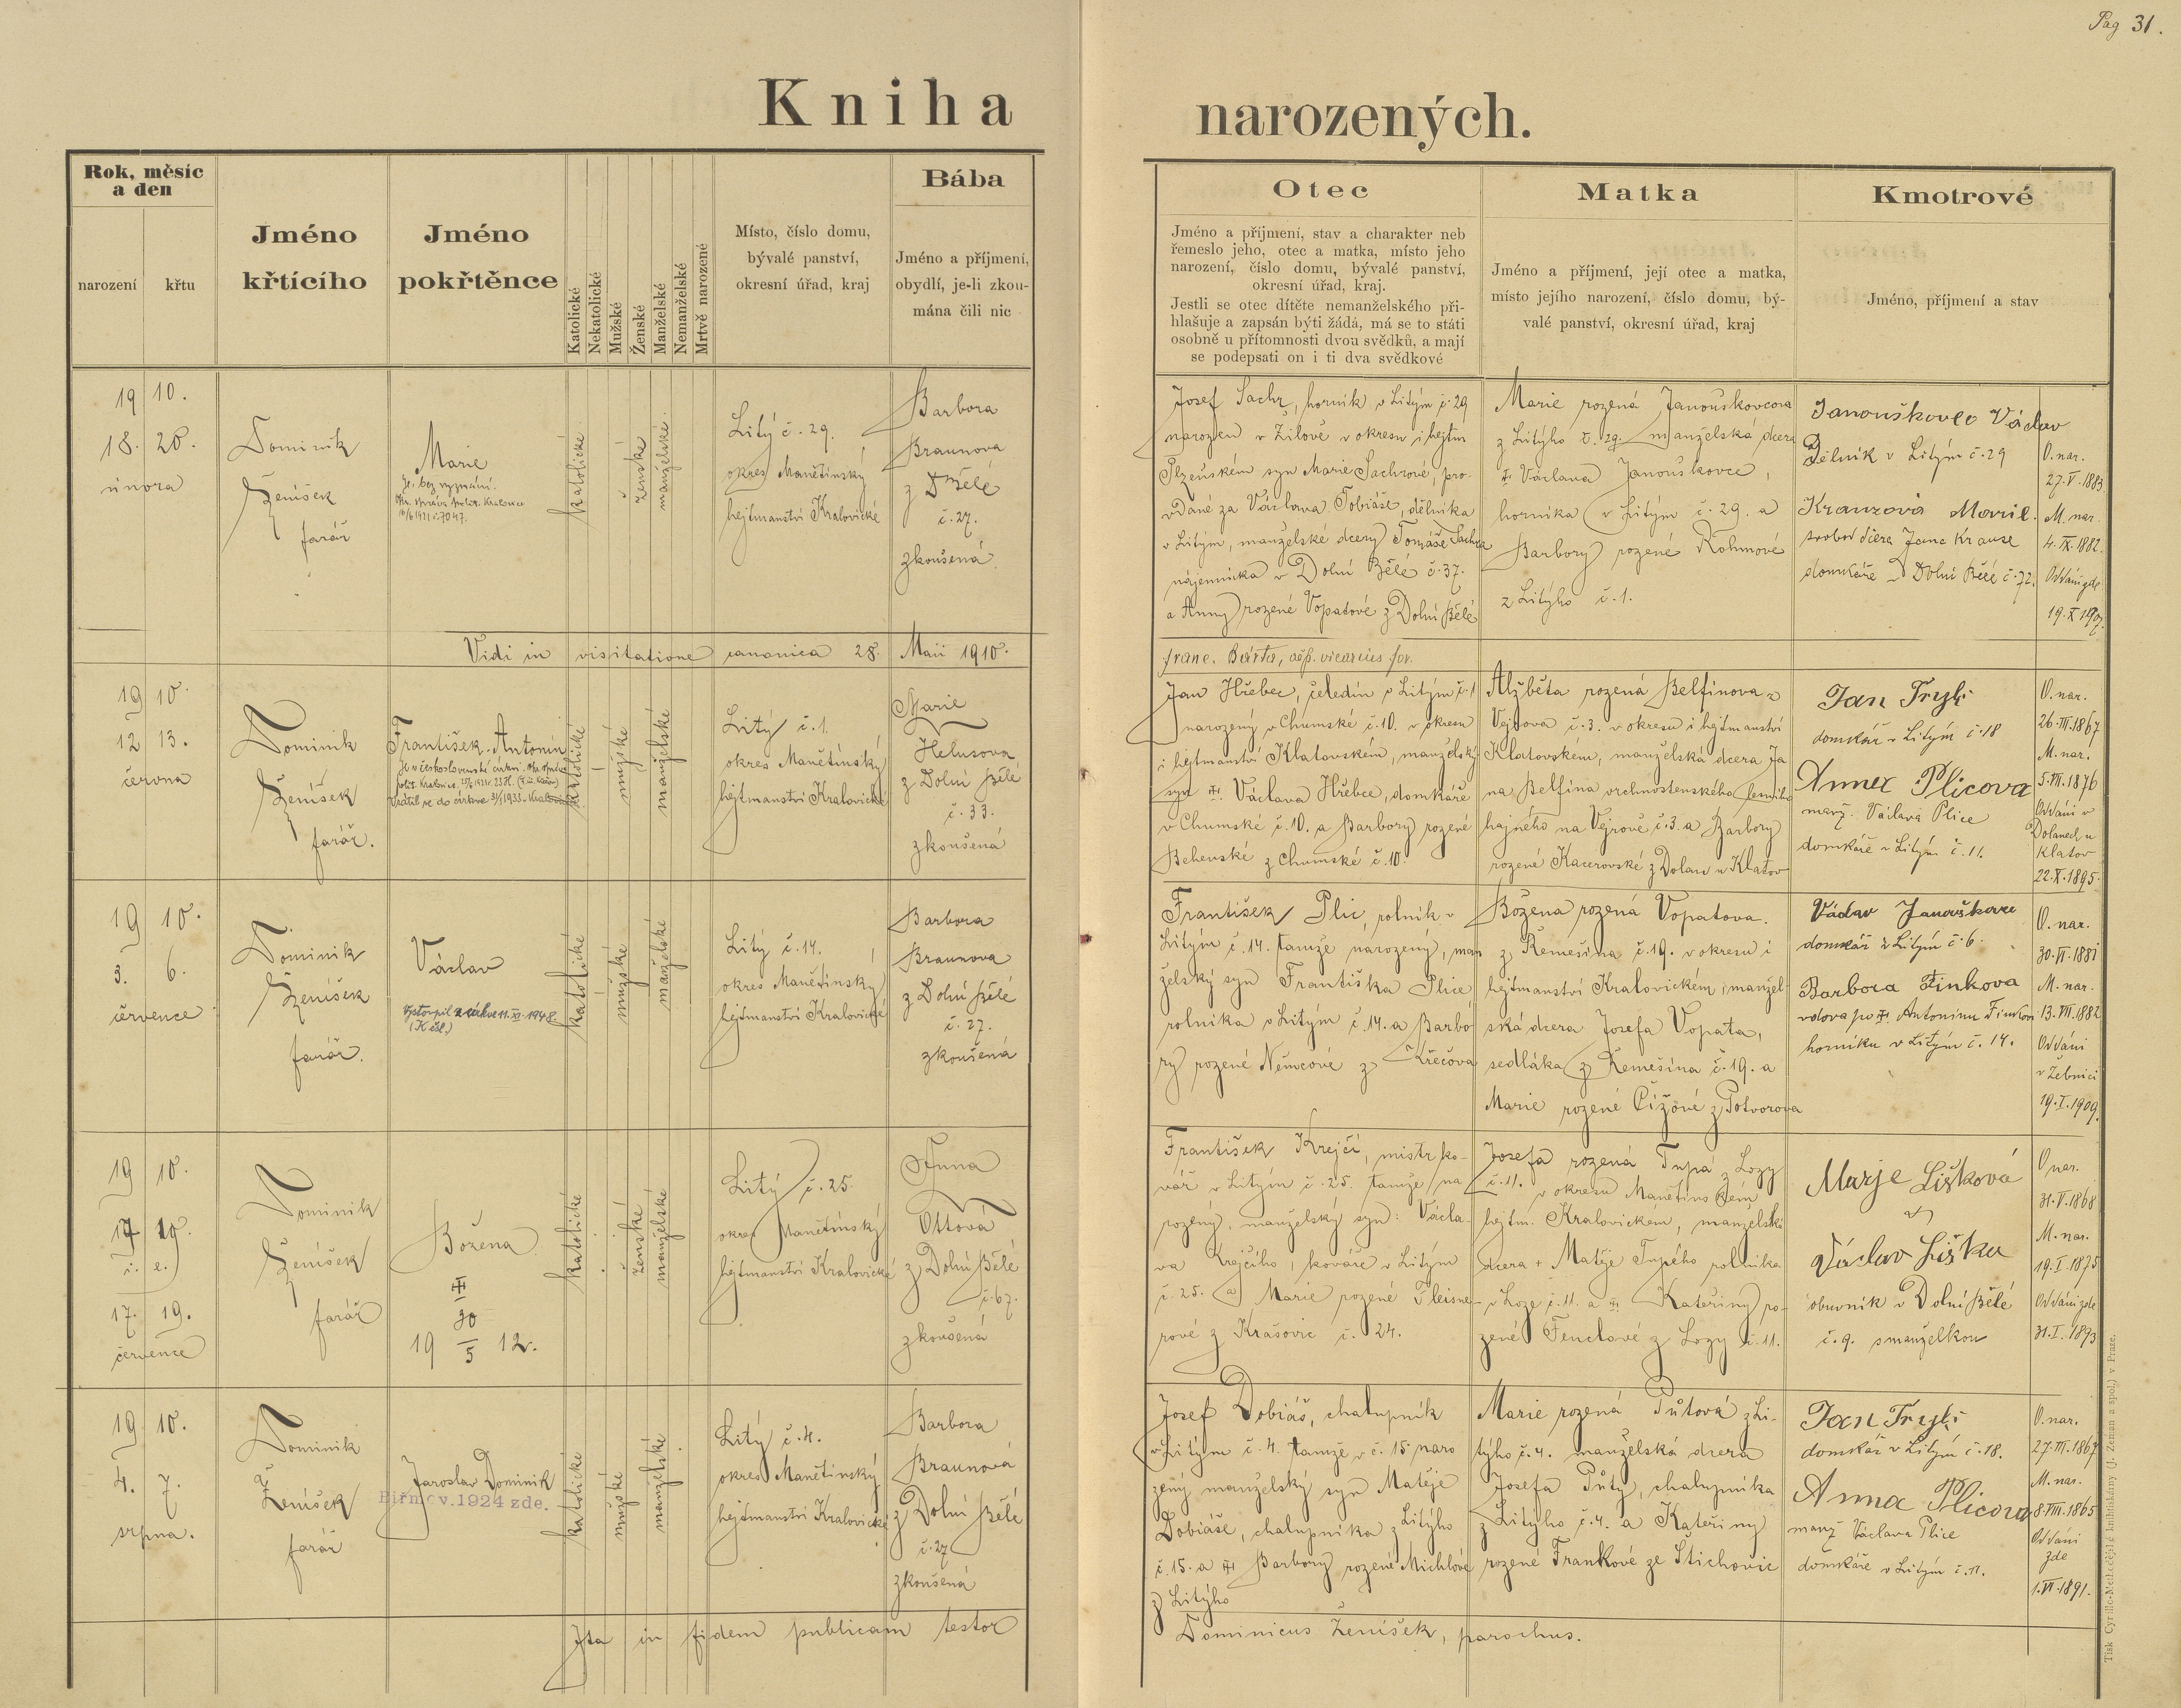 Pag 31.
Kniha narozených.
Rok, měsíc
a den
narození
křtu
Jméno
křtícího
Jméno
pokřtěnce
Katolické
Nekatolické
Mužské
Ženské
Manželské
Nemanželské
Mrtvě narozené
Místo, číslo domu,
bývalé panství,
okresní úřad, kraj
Bába
Jméno a příjmení,
obydlí, je-li zkou-
mána čili nic
Otec
Jméno a příjmení, stav a charakter neb
řemeslo jeho, otec a matka, místo jeho
narození, číslo domu, bývalé panství,
okresní úřad, kraj.
Jestli se otec dítěte nemanželského při-
hlašuje a zapsán býti žádá, má se to státi
osobně u přítomnosti dvou svědků, a mají
se podepsati on i ti dva svědkové
Matka
Jméno a příjmení, její otec a matka,
místo jejího narození, číslo domu, bý-
valé panství, okresní úřad, kraj
Kmotrové
Jméno, příjmení a stav
19 10.
18. 20.
února
Dominik
Ženíšek
farář
Marie
je bez vyznání.
katolické
ženské
manželské
Litý č. 29.
okres Manětínský
hejtmanství Kralovické
Barbora
Braunova
z D Bělé
č. 27.
zkoušená
Josef Sachr, horník v Litým č. 29
narozen v Žilově v okresu i hejtm
Plzeňském syn Marie Sachrové, pro-
vdané za Václava Tobiáše, dělníka
v Litým, manželské dcery Tomáše Sachra
nájemníka v Dolní Bělé č. 37.
a Anny rozené Vopatové z Dolní Bělé
Marie rozená Janouškovcova
z Litýho č. 29. manželská dcera
Václava Janouškovce,
horníka v Litým č. 29. a
Barbory rozené Rohmové
z Litýho č. 1.
Janouškovec Václav
Dělník v Litým č. 29
Kranzová Marie.
svobod dcera Jana Krause
domkáře v Dolní Bělé č. 72.
O. nar.
27. V. 1883.
M. nar.
4. IX. 1882.
Oddáni zde
19. X 1907.
Vidi in visitatione canonica 28. Maii 1910.
franc. Bárta, vicarius for.
19 10.
12 13.
června
Dominik
Ženíšek
farář.
František Antonín.
je v československé církvi.
Vrátil se do církve
katolické
mužské
manželské
Litý č. 1.
okres Manětínský
hejtmanství Kralovické
Marie
Helusova
z Dolní Bělé
č. 33.
zkoušená
Jan Hřebec, čeledín v Litým č. 1
narozený v Chumské č. 10. v okresu
i hejtmanství Klatovském, manželský
syn Václava Hřebce, domkáře
v Chumské č. 10. a Barbory rozené
Behenské z Chumské č. 10.
Alžběta rozená Belfínova z
Vejrova č. 3. v okresu i hejtmanství
Klatovském, manželská dcera Ja
na Belfína vrchnostenského lesního
hajného na Vejrově č. 3. a Barbory
rozené Kacerovské z Dolan u Klatov
Jan Tryli
domkář v Litým č. 18
Anna Plicova
manž. Václava Plice
domkáře v Litým č. 11.
O. nar.
26. III. 1867
M. nar.
5. VII. 1876
Oddáni v
Dolanech u
Klatov
22. X. 1895.
19 10.
3. 6.
července
Dominik
Ženíšek
farář.
Václav
Vystoupil z církve 11. XI. 1948.
katolické
mužské
manželské
Litý č. 14.
okres Manětínský
hejtmanství Kralovické
Barbora
Braunova
z Dolní Bělé
č. 27.
zkoušená
František Plic, rolník v
Litým č. 14. tamže narozený, man
želský syn Františka Plice
rolníka v Litým č. 14. a Barbo
ry rozené Němcové z Křečova
Božena rozená Vopatova.
z Řemešína č. 19. v okresu i
hejtmanství Kralovickém, manžel-
ská dcera Josefa Vopata,
sedláka z Řemešína č. 19. a
Marie rozené Čížové z Potvorova
Václav Janouškovec
domkář z Litým č. 6.
Barbora Finkova
vdova po Antonínu Finkovi
horníku v Litým č. 14.
O. nar.
30. VI. 1881
M. nar.
13. VII. 1882
Oddáni
v Žebnici
19. I. 1909.
19 10.
17 19.
i. e.
17. 19.
července
Dominik
Ženíšek
farář
Božena
30
19 5 12.
katolické
ženské
manželské
Litý č. 25.
okres Manětínský
hejtmanství Kralovické
Anna
Ottová
z Dolní Bělé
č. 67.
zkoušená
František Krejčí, mistr ko-
vář v Litým č. 25. tamže na
rozený, manželský syn: Václa-
va Krejčího, kováře v Litým
č. 25. a Marie rozené Fleisne-
rové z Krašovic č. 24.
Josefa rozená Tupá z Lozy
č. 11. v okresu Manětínském
hejtm. Kralovickém, manželská
dcera + Matěje Tupého rolníka
v Loze č. 11. a Kateřiny ro-
zené Fenclové z Lozy č. 11.
Marje Lišková
a
Václav Liška
obuvník v Dolní Bělé
č. 9. s manželkou
O nar.
31. V. 1868
M. nar.
19. I. 1875
Oddáni zde
31. I. 1893
19 10.
4. 7.
srpna.
Dominik
Ženíšek
farář
Jaroslav Dominik
Biřmov. 1924 zde.
katolické
mužské
manželské
Litý č. 4.
okres Manětínský
hejtmanství Kralovické
Barbora
Braunová
z Dolní Bělé
č. 27
zkoušená
Josef Dobiáš, chalupník
v Litým č. 4. tamže v č. 15 naro
zený manželský syn Matěje
Dobiáše, chalupníka z Litýho
č. 15. a Barbory rozené Michlové
z Litýho
Marie rozená Půtová z Li-
týho č. 4. manželská dcera
Josefa Půty, chalupníka
z Litýho č. 4. a Kateřiny
rozené Frankové ze Štichovic
Jan Tryli
domkář v Litým č. 18.
Anna Plicova
manž Václava Plice
domkáře v Litým č. 11.
O. nar.
27. III. 1867
M. nar.
8. VIII. 1865
Oddáni
zde
1. VI. 1891.
Ita in fidem publicam testor
Dominicus Ženíšek, parochus.
Tisk Cyrillo-Methodějské knihtiskárny (J. Zeman a spol.) v Praze.